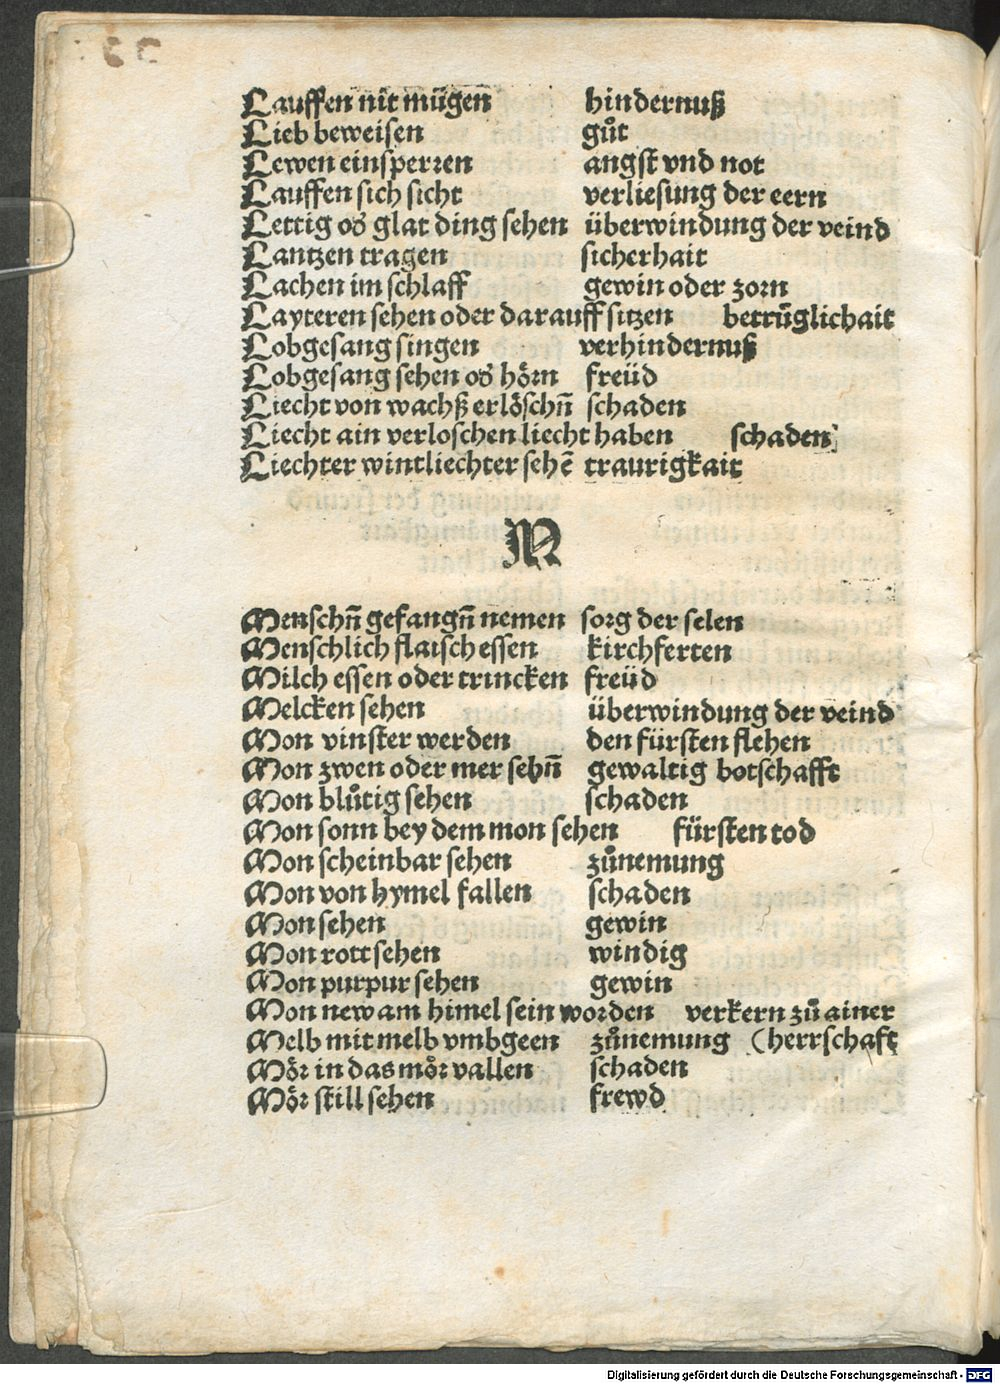 Lauffen nit mügen hindernuß
Lieb beweisen gůt
Lewen einsperren angst vnd not
Lauffen sich sicht verliesung der eern
Lettig oď glat ding sehen überwindung der veind
Lantzen tragen sicherhait
Lachen im schlaff gewin oder zorn
Layteren sehen oder darauff sitzen betrüglichait
Lobgesang singen verhindernuß
Lobgesang sehen oď hörn freüd
Liecht von wachß erlöschn̄ schaden
Liecht ain verloschen liecht haben schaden
Liechter wintliechter sehē traurigkait
M
Menschn̄ gefangn̄ nemen sorg der selen
Menschlich flaisch essen kirchferten
Milch essen oder trincken freüd
Melcken sehen überwindung der veind
Mon vinster werden den fürsten flehen
Mon zwen oder mer sehn̄ gewaltig botschafft
Mon blůtig sehen schaden
Mon sonn bey dem mon sehen fürsten tod
Mon scheinbar sehen zůnemung
Mon von hymel fallen schaden
Mon sehen gewin
Mon rott sehen windig
Mon purpur sehen gewin
Mon new am himel sein worden verkern zů ainer
Melb mit melb vmbgeen zůnemung (herrschaft
Mör in das mör vallen schaden
Mör still sehen frewd
Digitalisierung gefördert durch die Deutsche Forschungsgemeinschaft - DFG